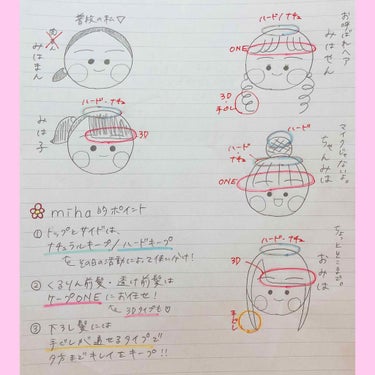 普段の私♡
みはまん
ハード・ナチュ
3D
みは子
お呼ばれヘア
みはせん
ハード/ナチュ
ONE
3D
手ぐし
マイクじゃないよ。
ちゃんみは
ハード
ハード/ナチュ
ONE
おみは
ハード・ナチュ
3D
手ぐし
miha的ポイント
①トップとサイドは、
ナチュラルキープ/ハードキープ
その日の活動によって使い分け!
②くるりん前髪・透け前髪は
ケープONEにお任せ!
3Dタイプも♡
③下ろし髪には
手ぐしが通せるタイプで
夕方までキレイをキープ!!